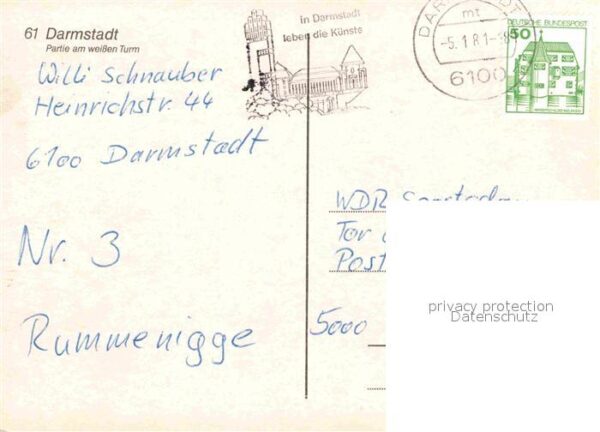 61 Darmstadt
Partie am weißen Turm
Willi Schnauber
Heinrichstr. 44
6100 Darmstadt
Nr. 3
Rummenigge
in Darmstadt
leben die Künste
DARMSTADT
mt
-5.-1.81-18
6100
DEUTSCHE BUNDESPOST
50
WDR
Tor
Post
5000
privacy protection
Datenschutz